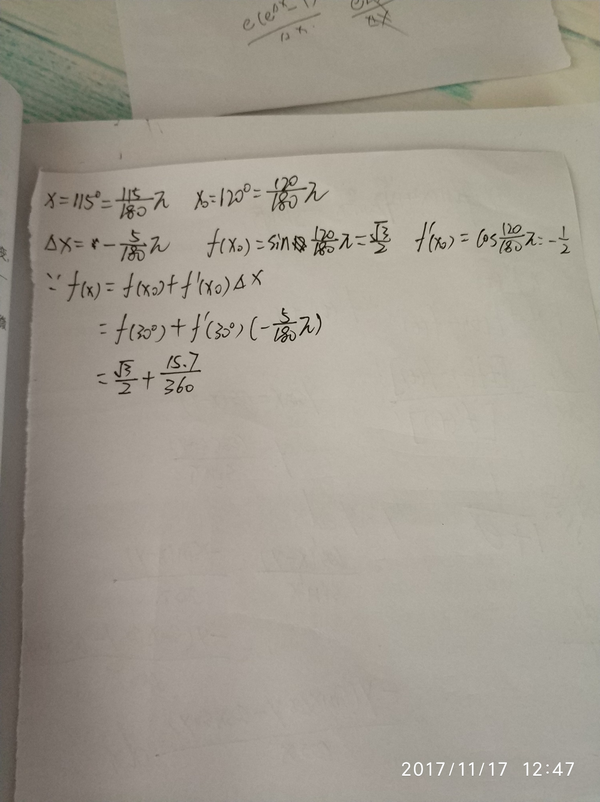 e(e^Δx-1)
Δx
x=115°=115/180π x0=120°=120/180π
Δx=-5/180π f(x0)=sin120/180π=√3/2 f'(x0)=cos120/180π=-1/2
∵f(x)=f(x0)+f'(x0)Δx
=f(30°)+f'(30°)(-5/180π)
=√3/2+15.7/360
2017/11/17 12:47